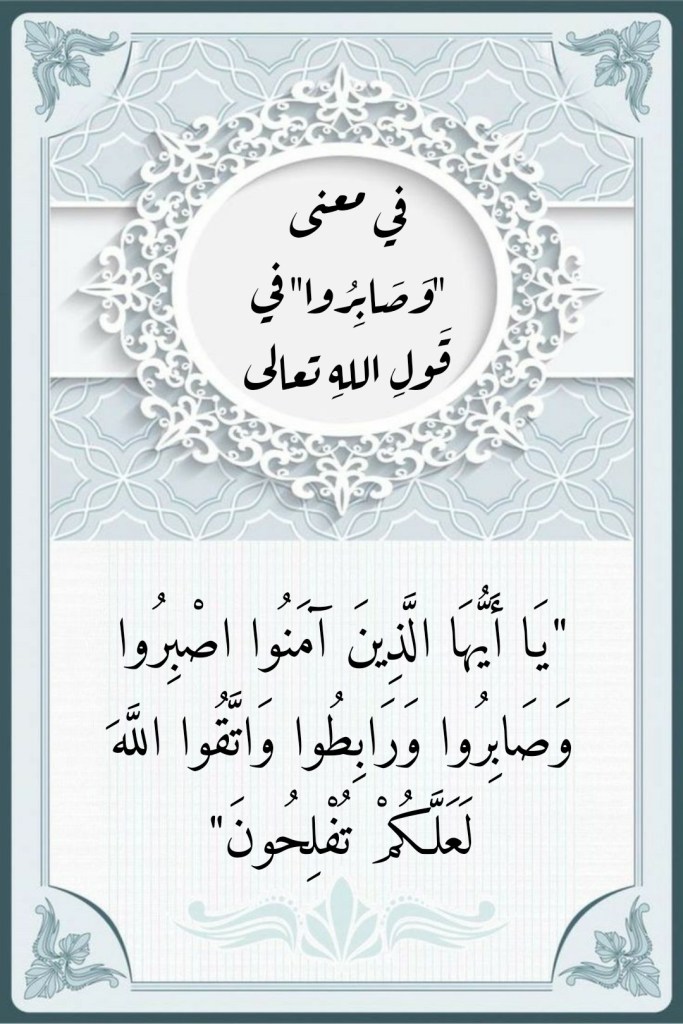 في معنى
"وَصَابِرُوا" في
قَولِ اللهِ تعالى
"يَا أَيُّهَا الَّذِينَ آمَنُوا اصْبِرُوا
وَصَابِرُوا وَرَابِطُوا وَاتَّقُوا اللَّهَ
لَعَلَّكُمْ تُفْلِحُونَ"